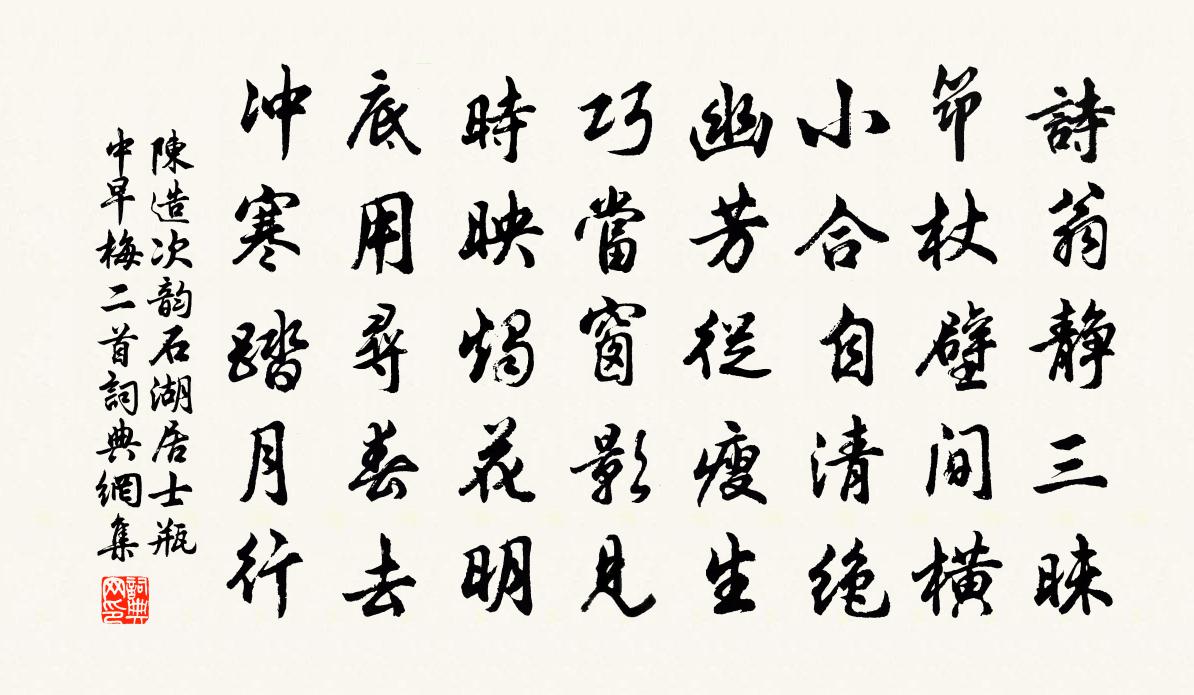 詩翁靜三昧
筇杖壁間橫
小合自清絶
幽芳從瘦生
巧當窗影見
時映燭花明
底用尋春去
冲寒踏月行
陳造次韵石湖居士瓶
中早梅二首詞典網集
詞典网印